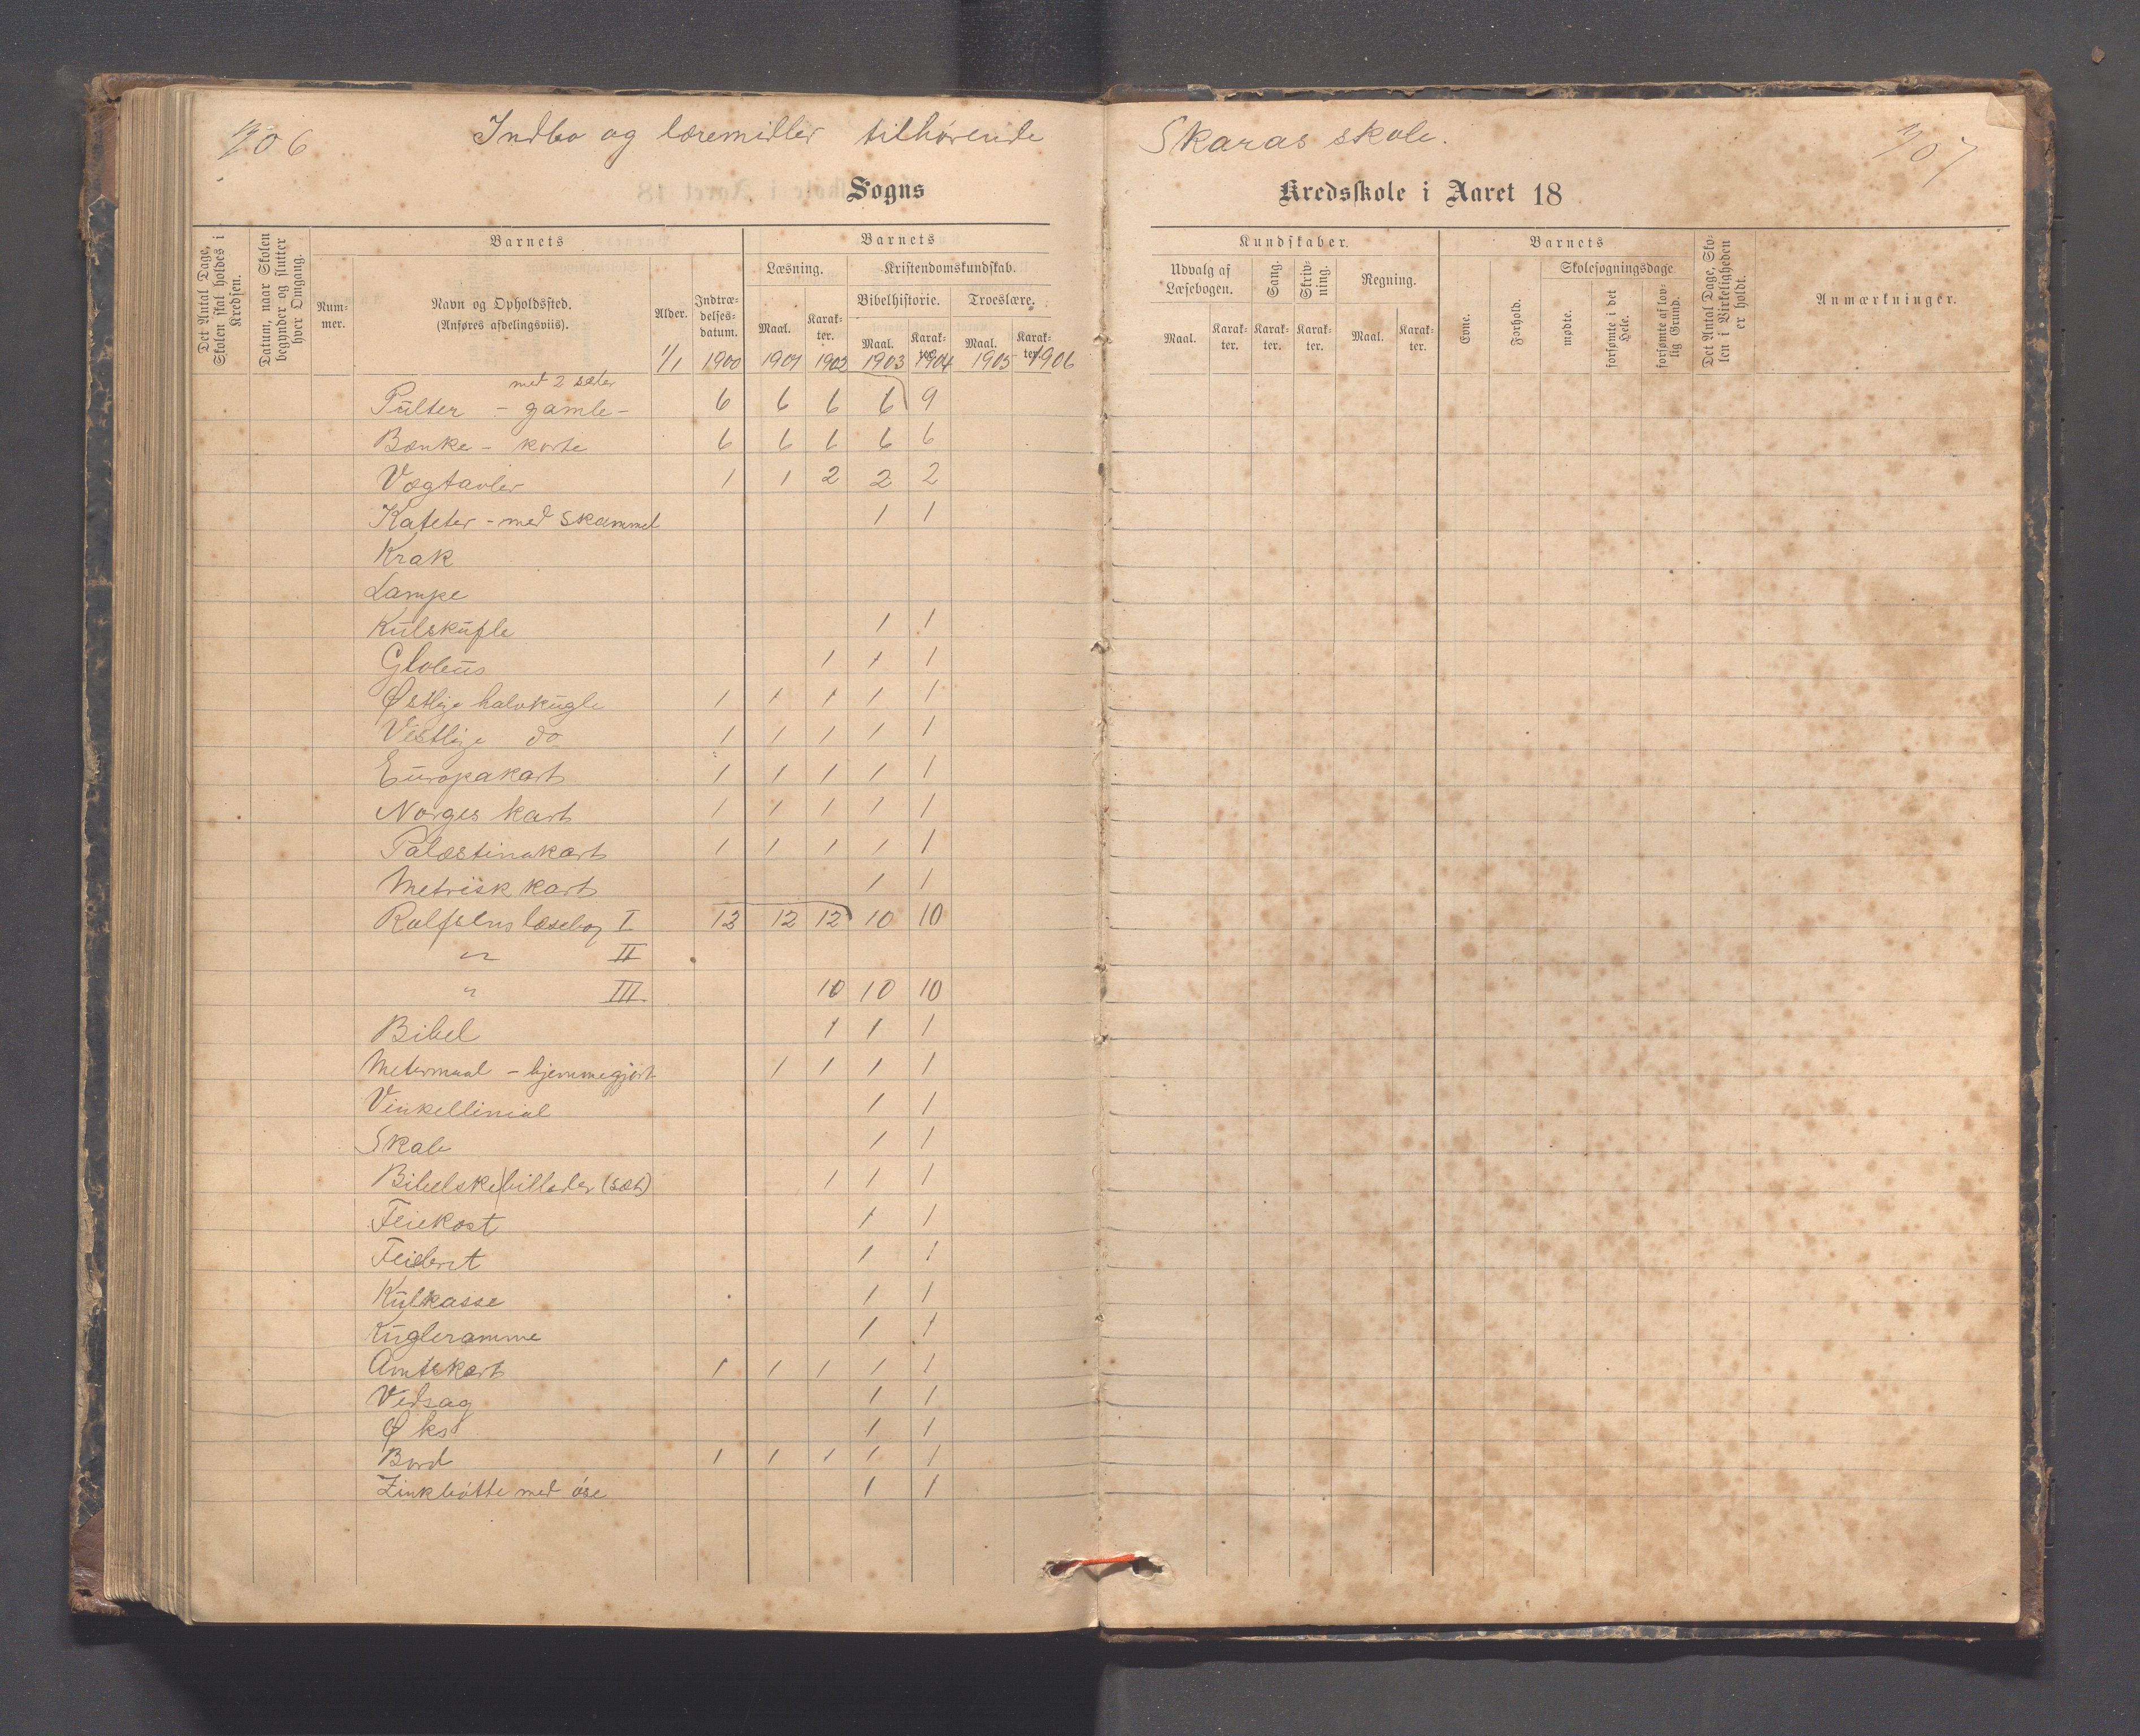 Indbo og læremidler tilhørende Skaras skole.
Sogns Kredsskole i Aaret 18
Det Antal Dage, Skolen skal holdes i Kredsen.
Datum, naar Skolen begynder og slutter hver Omgang.
Barnets
Nummer.
Navn og Opholdssted.
(Anføres afdelingsviis).
Alder.
Indtrædelsesdatum.
Barnets
Læsning.
Maal.
Karakter.
Kristendomskundskab.
Bibelhistorie.
Maal.
Karakter.
Troeslære.
Maal.
Karakter.
Kundskaber.
Udvalg af Læsebogen.
Maal.
Karakter.
Sang.
Karakter.
Skrivning.
Karakter.
Regning.
Maal.
Karakter.
Barnets
Evne.
Forhold.
Skolesøgningsdage
mødte.
forsømte i det Hele.
forsømte af lovlig Grund.
Det Antal Dage, Skolen i Virkeligheden er holdt.
Anmærkninger.
1/1 1900 1901 1902 1903 1904 1905 1906
med 2 sæder
Pulter - gamle - 6 6 6 6 9
Bænke - korte 6 6 6 6 6
Vægtavler 1 1 2 2 2
Kateter - med skammel 1 1
Krak
Lampe
Kulskufle 1 1
Globus 1 1 1
Østlige halvkugle 1 1 1 1 1
Vestlige do 1 1 1 1 1
Europakart 1 1 1 1 1
Norges kart 1 1 1 1 1
Palæstinakart 1 1 1 1 1
Metrisk kart 1 1
Rolfsens læsebog I 12 12 12 10 10
" II
" III 10 10 10
Bibel 1 1 1
Metermaal - hjemmegjort 1 1 1 1
Vinkellinial 1 1
Skale 1 1
Bibelske billeder (sæt) 1 1 1
Feiekost 1 1
Feiebret 1 1
Kulkasse 1 1
Kugleramme 1 1
Amtskart 1 1 1 1 1
Vedsag 1 1
Øks 1 1
Bord 1 1 1 1 1
Zinkbøtte med øse 1 1